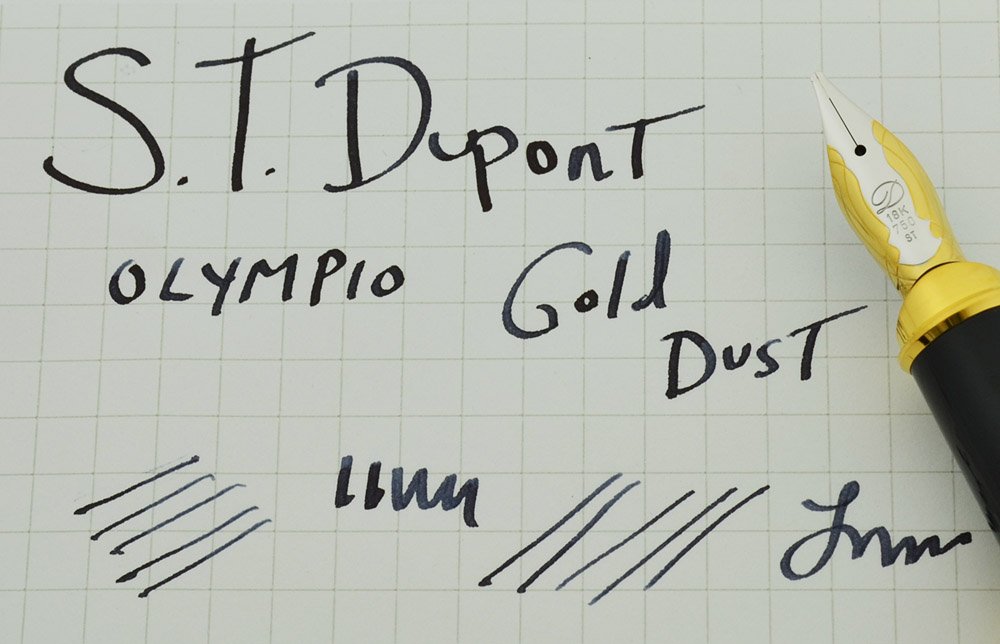 S.T. Dupont
OLYMPIO Gold
DUST
D
18K
750
ST